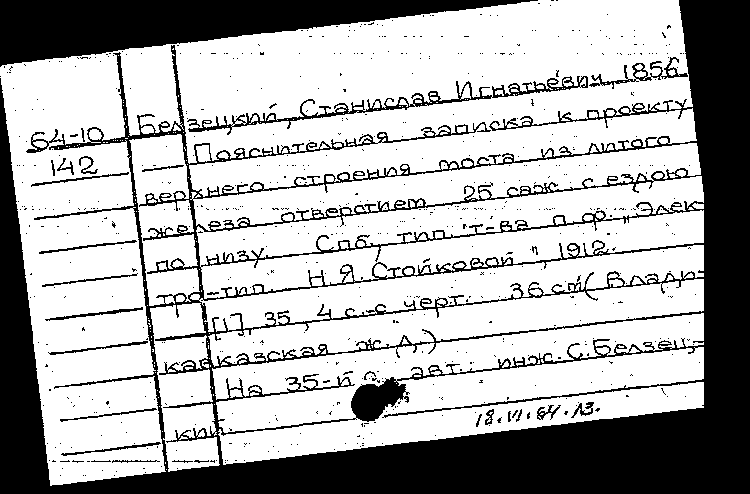 64-10 Белзецкий, Станислав Игнатьевич, 1856
142 Пояснительная записка к проекту
верхнего строения моста из литого
железа отверстием 25 саж. с ездою
по низу. Спб, тип. т-ва п. ф. „Элек-
тро-тип. Н. Я. Стойковой", 1912.
[1], 35, 4 с. с черт. 36 см (Влади-
кавказская ж. д.)
На 35-й с. авт.: инж. С. Белзец-
кий.
18.VI.64.